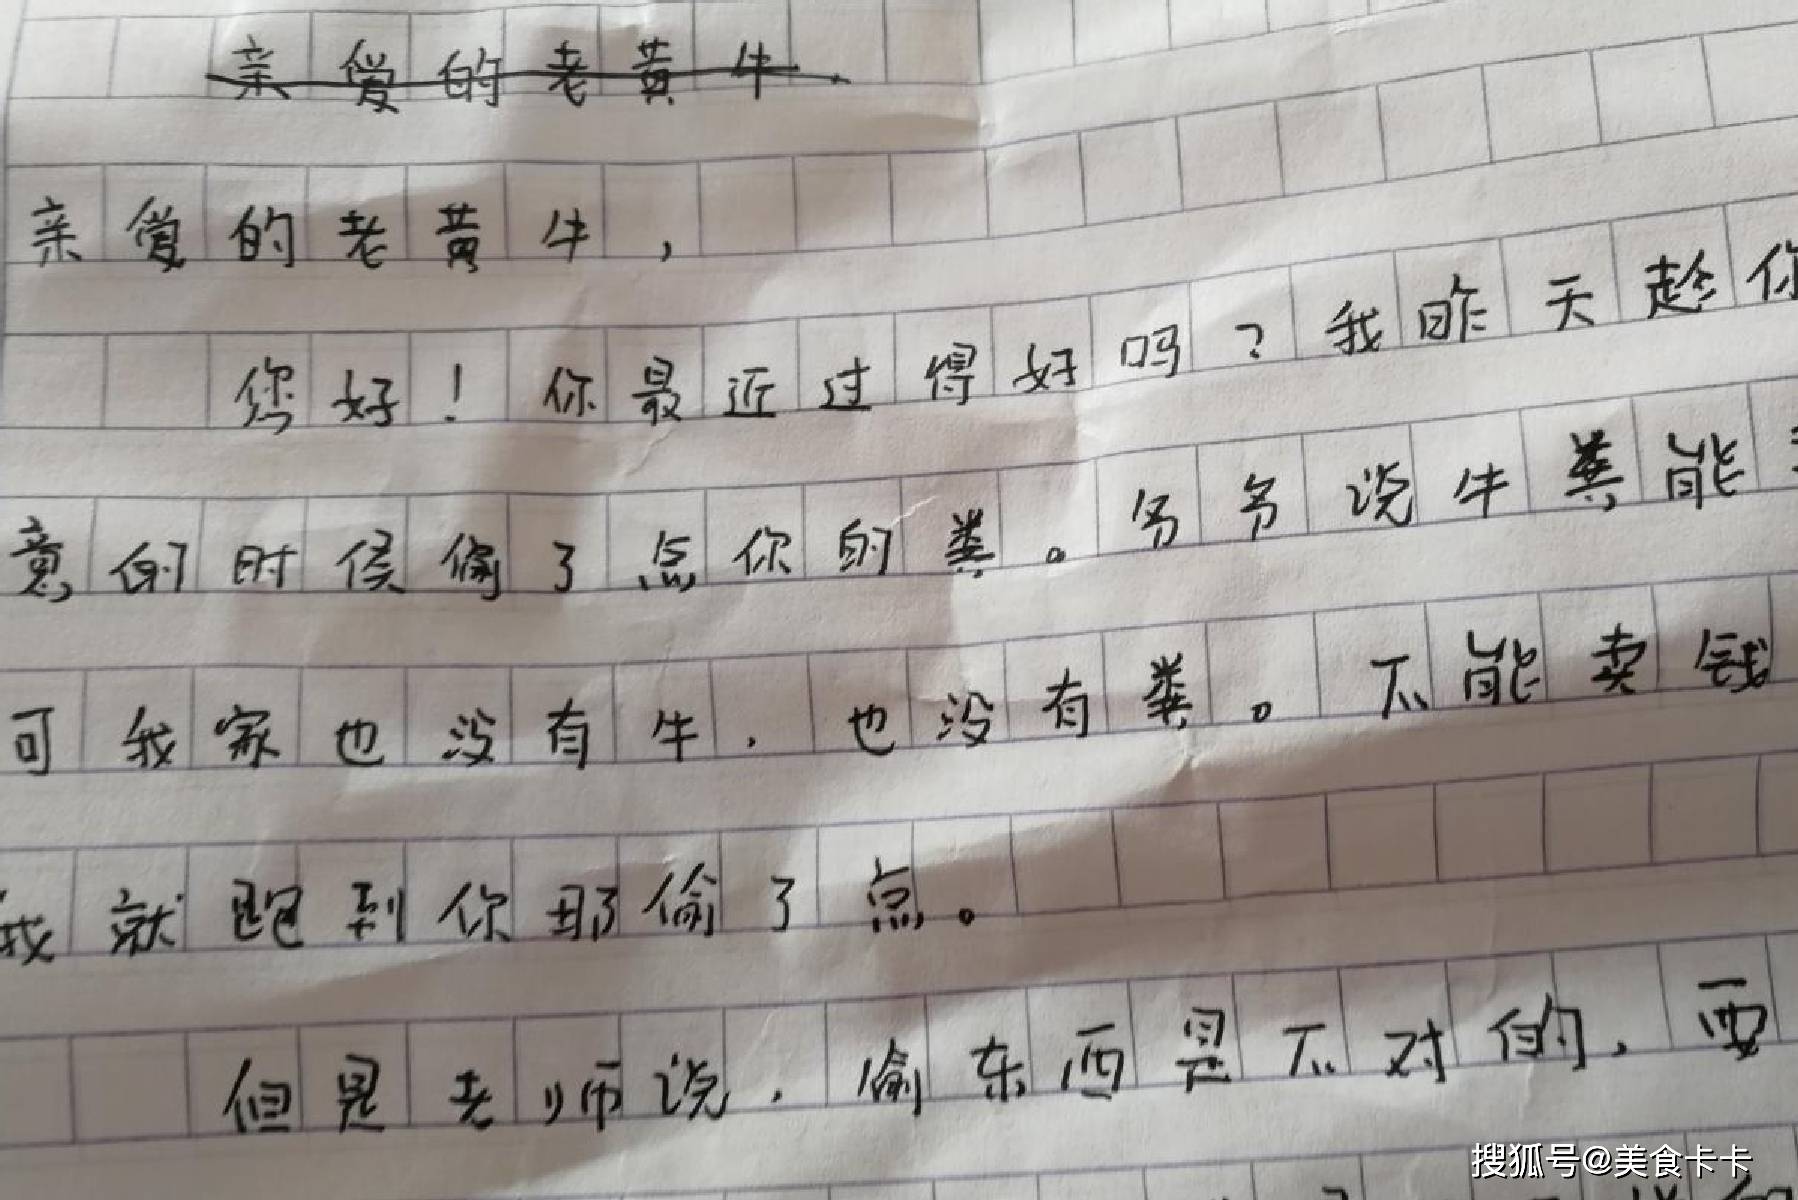 亲爱的老黄牛
亲爱的老黄牛,
您好!你最近过得好吗?我昨天趁你
意的时候偷了点你的粪。爷爷说牛粪能
可我家也没有牛,也没有粪。不能卖钱
我就跑到你那偷了点。
但是老师说,偷东西是不对的,要
搜狐号@美食卡卡